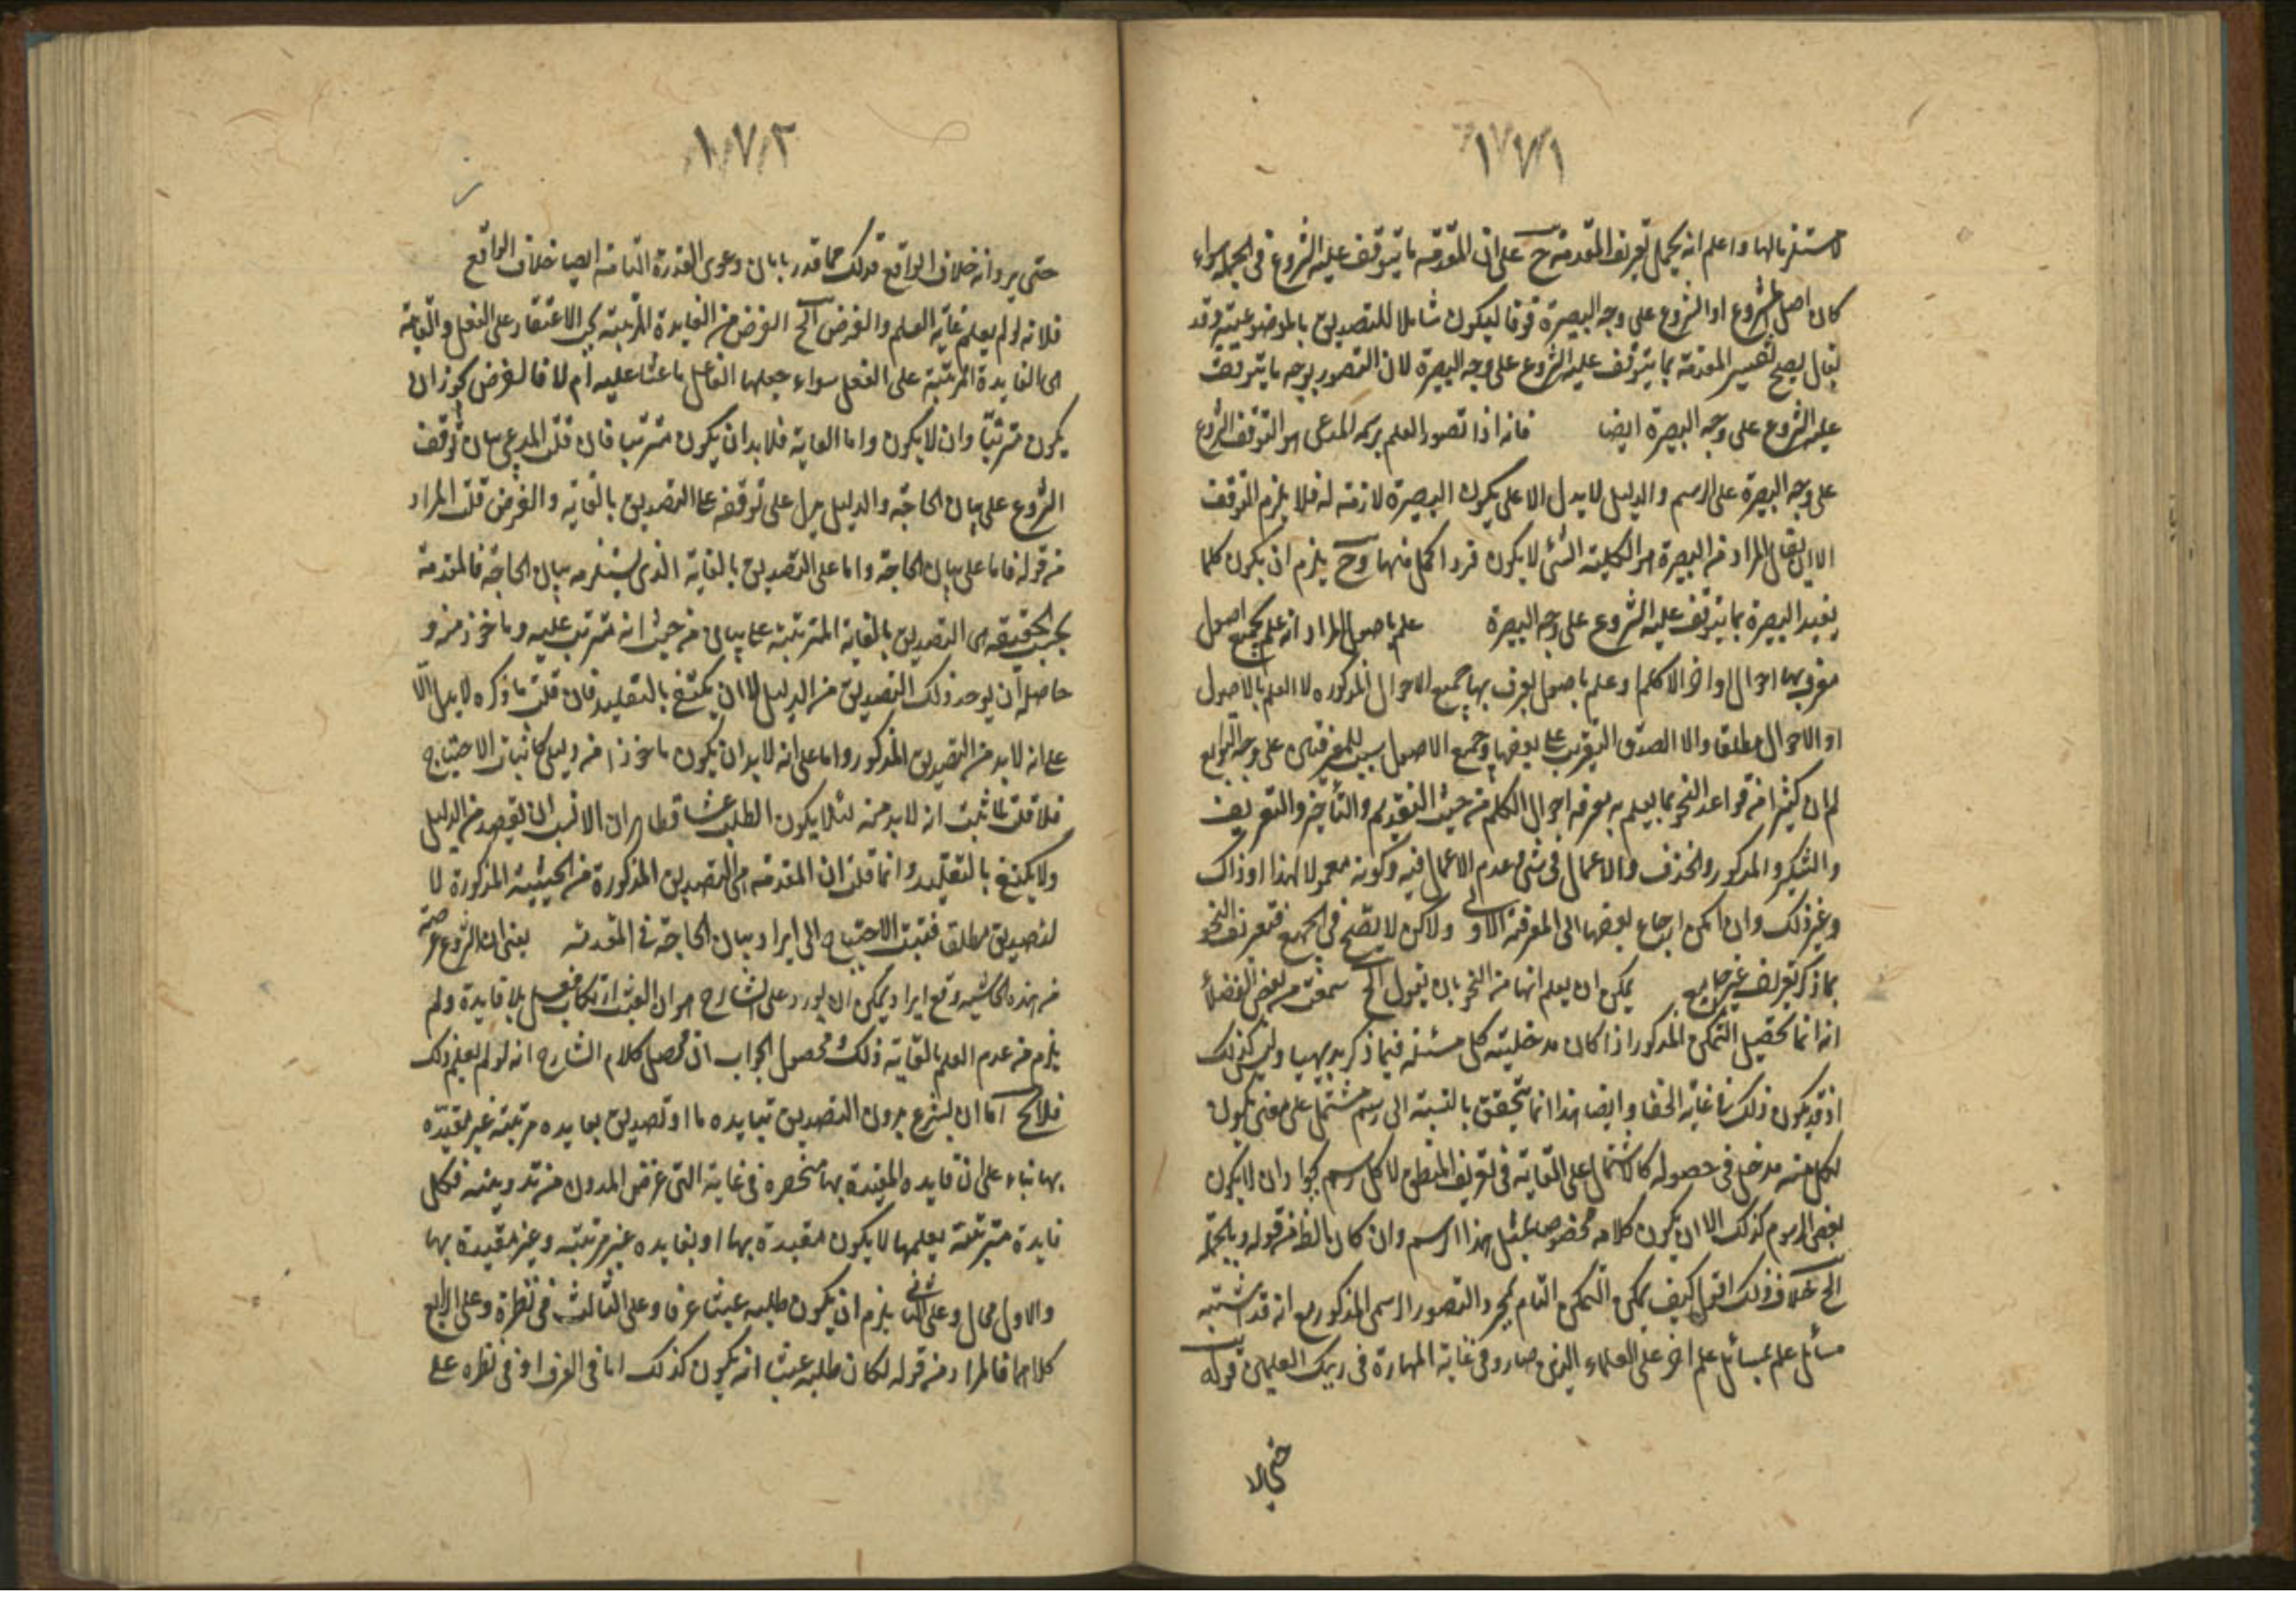 ١٧١
لاستلزمالها واعلم انه يحمل تعريف المقدمة ح على ان المقدمة ما يتوقف عليه الشروع فى الجملة سواء
كان اصل الشروع او الشروع على وجه البصيرة فوقا ليكون شاملا للتصديق بالموضوعية وقد
يقال يصح تفسير المقدمة بما يتوقف عليه الشروع على وجه البصيرة لان التصور بوجه ما يتوقف
عليه الشروع على وجه البصيرة ايضا فانه اذا تصور العلم برسمه المدعى هو التوقف الشروع
على وجه البصيرة على الرسم والدليل لا يدل الا على يكون البصيرة لازمة له فلا يلزم التوقف
الا ان يقال المراد من البصيرة هو الكلية التى لا يكون فردا كمل منها وح يلزم ان يكون كلما
يفيد البصيرة بما يتوقف عليه الشروع على وجه البصيرة علم باصول المراد انه علم بجميع اصول
معرف بها احوال اواخر الكلم او علم باصول يعرف بها جميع الاحوال المذكوره لا العلم بالاصول
او الاحوال مطلقا والا لصدق التعريف على بعضها وجميع الاصول سبب للمعرفتين على وجه التوابع
لم ان كثيرا من قواعد النحو بما يعلم به معرفة احوال الكلم من حيث التقديم والتأخير والتعريف
والتنكير والمذكور والحذف والاعمال فى شئ وعدم الاعمال فيه وكونه معمولا لهذا او ذاك
وغير ذلك وان امكن ارجاع بعضها الى المعرفة الاولى ولاكن لا يتضح فى الجميع فتعريف النحو
بما ذكر تعريف غير جامع يمكن ان يعلم انها من النحو بان يقول الخ سمعت من بعض الفضلأ
انه انما تحصيل التمكن المذكور اذا كان مدخلية كل مسئلة فيما ذكر بديهيا وليس كذلك
اذ قد يكون ذلك فى غاية الخفا وايضا هذا انما يتحقق بالنسبة الى رسم مشتمل على معنى يكون
لكل منه مدخل فى حصوله كالاشتمال على الغاية فى تعريف المنطق لا كل رسم بجواز ان لا يكون
بعض الرسوم كذلك الا ان يكون كلامه مخصوص بمثل هذا الرسم وان كان الظ من قوله وبالجملة
الخ خلاف ذلك اقول كيف يمكن التمكن التام بمجرد التصور الرسمى المذكور مع انه قد اشتبه
مسائل علم بمسائل علم اخر على العلماء الذين صاروا فى غاية المهارة فى ذينك العلمين قوله
١٧٢
حتى يرد انه خلاف الواقع قولك مما قدر بابان دعوى القدرة التامة ايضا خلاف الواقع
فلانه لو لم يعلم غاية العلم والغرض الخ الغرض من الفايدة المرتبة بحسب الاعتقاد على الفعل والغاية
هى الفايدة المرتبة على الفعل سواء جعلها الفاعل باعثا عليه ام لا فالغرض يجوز ان
يكون مترتبا وان لا يكون واما الغاية فلا بد ان يكون مترتبا فان قلت المدعى بيان توقف
الشروع على بيان الحاجة والدليل يدل على توقفه على التصديق بالغاية والغرض قلت المراد
من قوله فاما على بيان الحاجة واما على التصديق بالغاية الذى يستلزمه بيان الحاجة فالمقدمة
بحسب الحقيقة هى التصديق بالغاية المترتبة على بيان من حيث انه مترتب عليه وماخوذ منه و
حاصله ان يوجد ذلك التصديق من الدليل لا ان يكتفى بالتقليد فان قلت ما ذكره لا يدل الا
على انه لا بد من التصديق المذكور واما على انه لا بد ان يكون ماخوذا من دليل كاثبات الاحتياج
فلا قلت لما ثبت انه لا بد منه لئلا يكون الطلب عبثا فظاهر ان الانسب ان يقصد من الدليل
ولا يكتفى بالتقليد وانما قلت ان المقدمة هى التصديق المذكورة من الحيثية المذكورة لا
لتصديق مطلق فثبت الاحتياج الى ايراد بيان الحاجة فى المقدمة يعنى ان الشروع
من هذه الحاشيه وقع ايراد يمكن ان يورد على الشارح هو ان العبث ارتكاب فعل بلا فايدة ولم
يلزم من عدم العلم بالغاية ذلك محصول الجواب ان محصل كلام الشارح انه لو لم يعلم ذلك
فلا يخ اما ان يشرع بدون التصديق بفايده ما او تصديق بفايده مرتبة غير مقيده
بها بناء على ان فايده المقيدة بها منحصره فى غاية التى غرض المدون من تدوينه فكل
فايدة مترتبة يعلمها لا يكون مقيدة بها او بفايده غير مرتبة وغير مقيدة بها
والاول محال وعلى الثانى يلزم ان يكون طلبه عبثا عرفا وعلى الثالث فى نظره وعلى الرابع
كلاهما فالمراد من قوله لكان طلبه عبثا انه يكون كذلك اما فى العرف او فى نظره على